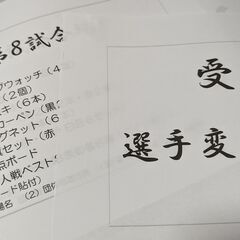 第8試合
グウォッチ(4
(2個)
スキ(6本)
カーペン(黒
グネット(6
セット(赤
点ボード
人戦ベスト
ード貼付)
場名 (2) 団体
受
選手変